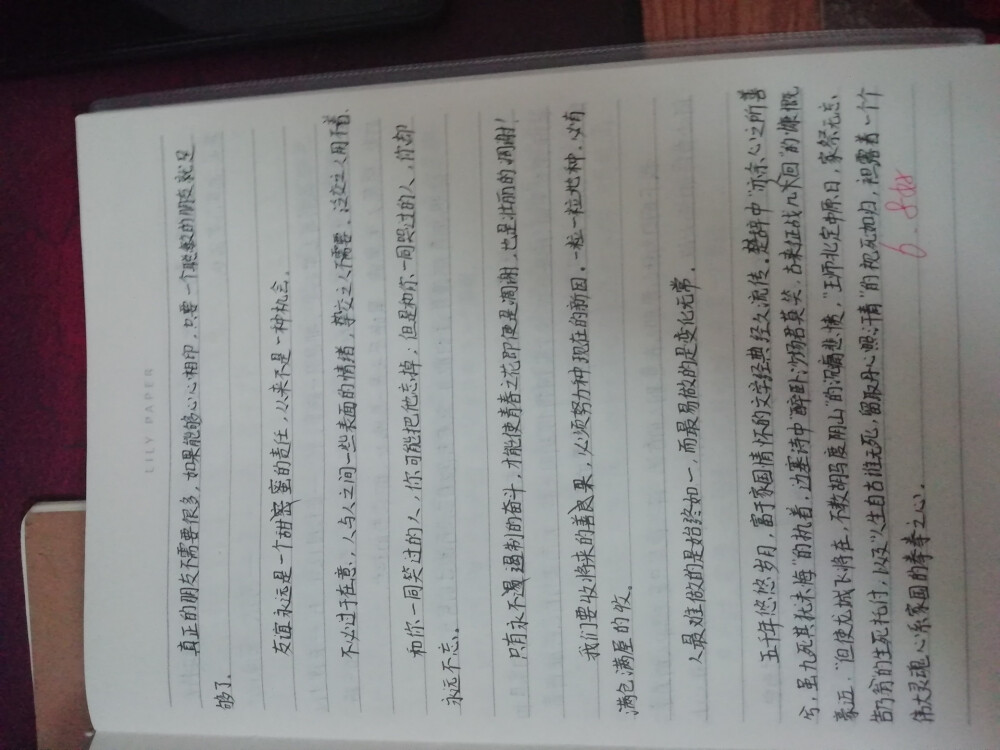 LILY PAPER
真正的朋友不需要很多，如果能够心心相印，只要一个聪敏的朋友就足
够了。
友谊永远是一个甜蜜的责任，从来不是一种机会。
不必过于在意，人与人之间一些表面的情绪，挚交之人不需要，泛交之人用不着。
和你一同笑过的人，你可能把他忘掉；但是和你一同哭过的人，你却
永远不忘。
只有永不遏制的奋斗，才能使青春之花即便是凋谢，也是壮丽的凋谢！
我们要收将来的善良果，必须努力种现在的新因。一粒一粒地种，必有
满仓满屋的收。
人最难做的是始终如一，而最易做的是变化无常。
五千年悠悠岁月，富于家国情怀的文学经典经久流传。楚辞中“亦余心之所善
兮，虽九死其犹未悔”的执着，边塞诗中“醉卧沙场君莫笑，古来征战几人回”的慷慨
豪迈，“但使龙城飞将在，不教胡马度阴山”的沉痛悲情，“王师北定中原日，家祭无忘
告乃翁”的生死托付，以及“人生自古谁无死，留取丹心照汗青”的视死如归，袒露着一个个
伟大灵魂心系家国的拳拳之心。